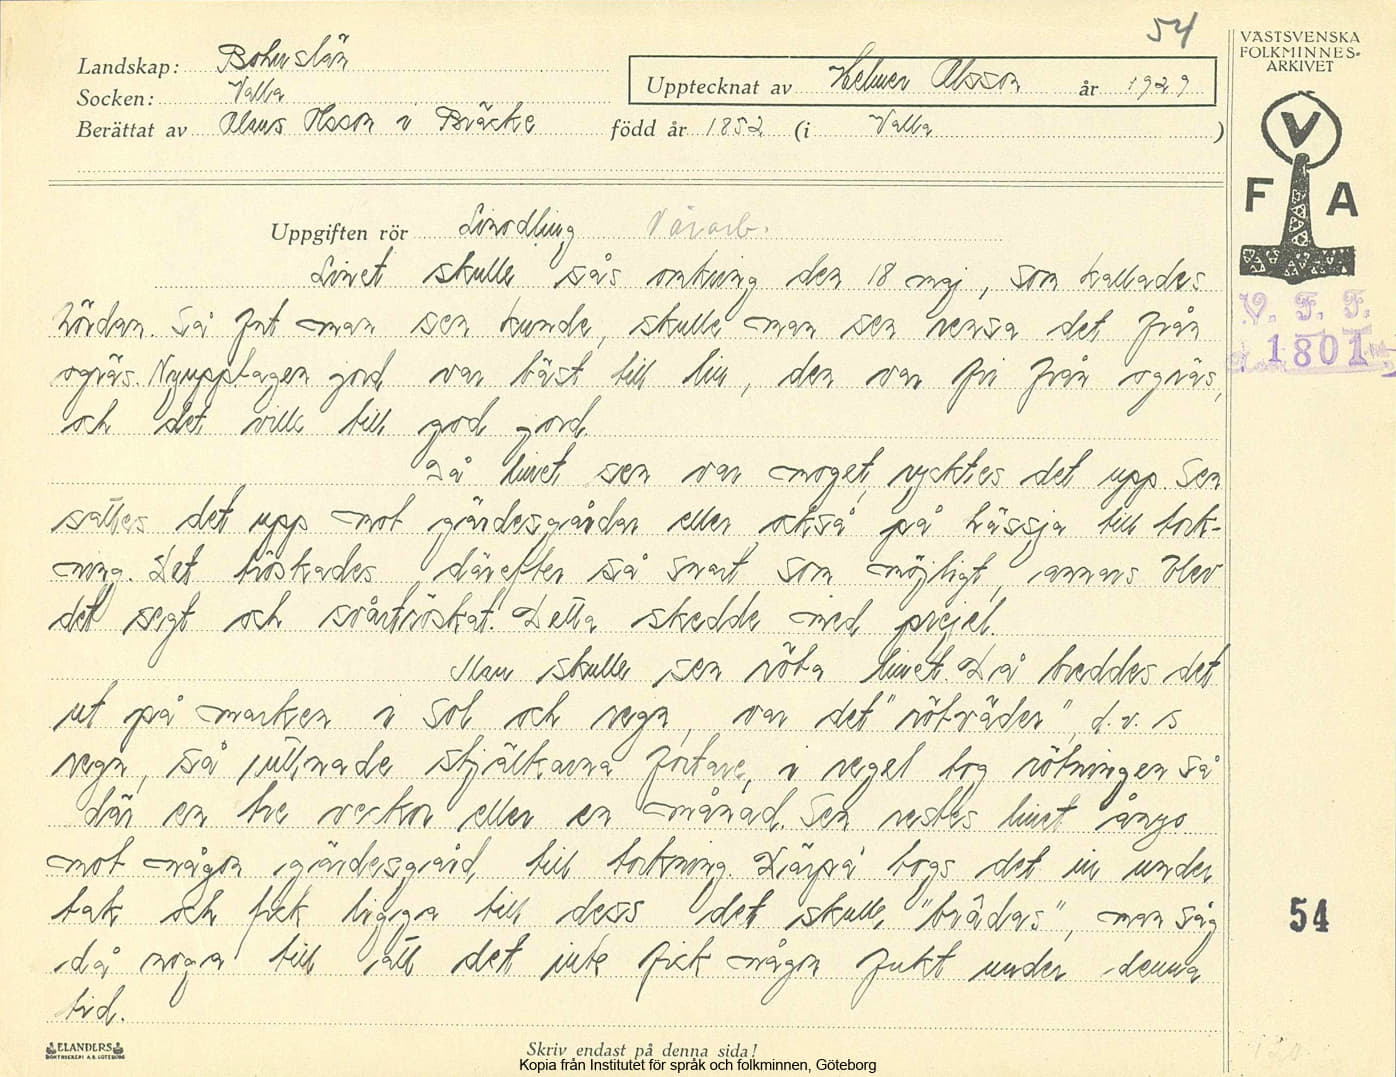 54
VÄSTSVENSKA
FOLKMINNES-
ARKIVET
Landskap: Bohuslän
Upptecknat av Helmer Olsson år 1929
Socken: Valla
Berättat av Olaus Olsson i Bräcke född år 1852 (i Valla )
V
F A
Uppgiften rör Linodling Vävarb.
V. F. F.
1801
Linet skulle sås omkring den 18 maj, som kallades
hördan. Så fort man sen kunde, skulle man sen rensa det från
ogräs. Nyupptagen jord var bäst till lin, den var fri från ogräs,
och det ville till god jord.
Då linet sen var moget, rycktes det upp. Sen
sattes det upp mot gärdesgårdar eller också på hässja till tork-
ning. Det tröskades därefter så snart som möjligt, annars blev
det segt och svårtröskat. Detta skedde med prejel.
Man skulle sen röta linet. Då breddes det
ut på marken i sol och regn, var det "rötväder", d.v.s
regn, så ruttnade stjälkarna fortare, i regel tog rötningen så
där en tre veckor eller en månad. Sen restes linet ånyo
mot någon gärdesgård, till torkning. Därpå togs det in under
tak och fick ligga till dess det skulle "brådas", man såg
då noga till att det inte fick någon fukt under denna
tid.
54
ELANDERS
BOKTRYCKERI A.B. GÖTEBORG
Skriv endast på denna sida!
Kopia från Institutet för språk och folkminnen, Göteborg